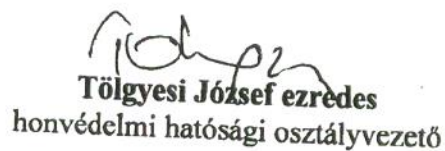 Tölgyesi József ezredes
honvédelmi hatósági osztályvezető